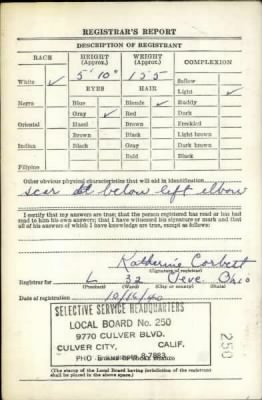 REGISTRAR'S REPORT
DESCRIPTION OF REGISTRANT
RACE HEIGHT (Approx.) WEIGHT (Approx.) COMPLEXION
5' 10" 155
White ✓ Sallow
EYES HAIR Light ✓
Negro Blue Blonde ✓ Ruddy
Gray ✓ Red Dark
Oriental Hazel Brown Freckled
Brown Black Light brown
Indian Black Gray Dark brown
Bald Black
Filipino
Other obvious physical characteristics that will aid in identification
scar below left elbow
I certify that my answers are true; that the person registered has read or has had
read to him his own answers; that I have witnessed his signature or mark and that
all of his answers of which I have knowledge are true, except as follows:
Katherine Corbett
(Signature of registrar)
Registrar for L 32 Cleve Ohio
(Precinct) (Ward) (City or county) (State)
Date of registration 10/16/40
SELECTIVE SERVICE HEADQUARTERS
LOCAL BOARD No. 250
9770 CULVER BLVD.
CULVER CITY, CALIF.
250
(STAMP OF LOCAL BOARD)
(The stamp of the Local Board having jurisdiction of the registrant
shall be placed in the above space.)